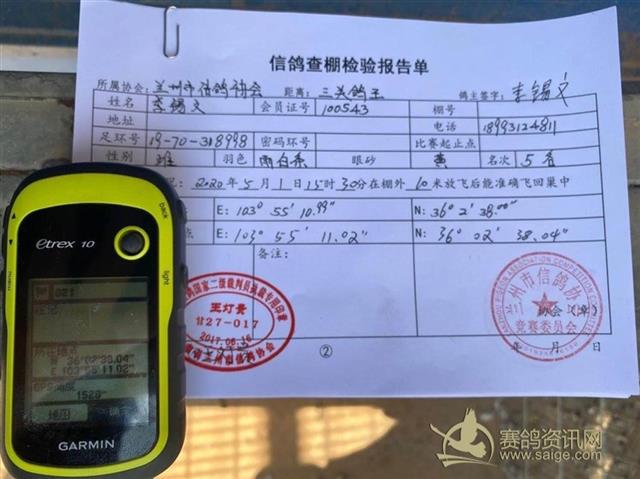 信鸽查棚检验报告单
所属协会: 兰州市信鸽协会 距离: 三关鸽王 鸽主签字: 李锡文
姓名 李锡文 会员证号 100543 棚号
地址 电话 18993124811
足环号 19-70-318998 密码环号 比赛起止点
性别 雄 羽色 雨白条 眼砂 黄 名次 5名
况: 2020年5月1日15时30分在棚外 60米放飞后能准确飞回巢中
E: 103° 55′ 10.99″ N: 36° 2′ 38.00″
点 E: 103° 55′ 11.02″ N: 36° 02′ 38.04″
备注:
鸽国家二级裁判员执裁专用印章
王灯贵
甘27-017
2017.06.16
兰州市信鸽协会
②
PIGEON ASSOCIATION COMPETITION
兰州市信鸽协会
竞赛委员会
协会(章)
年 月 日
back
menu
light
etrex 10
021
标记
所在地点
N 36°02'38.04"
E 103°55'11.02"
GPS高度
1529
GARMIN
赛鸽资讯网
www.saige.com